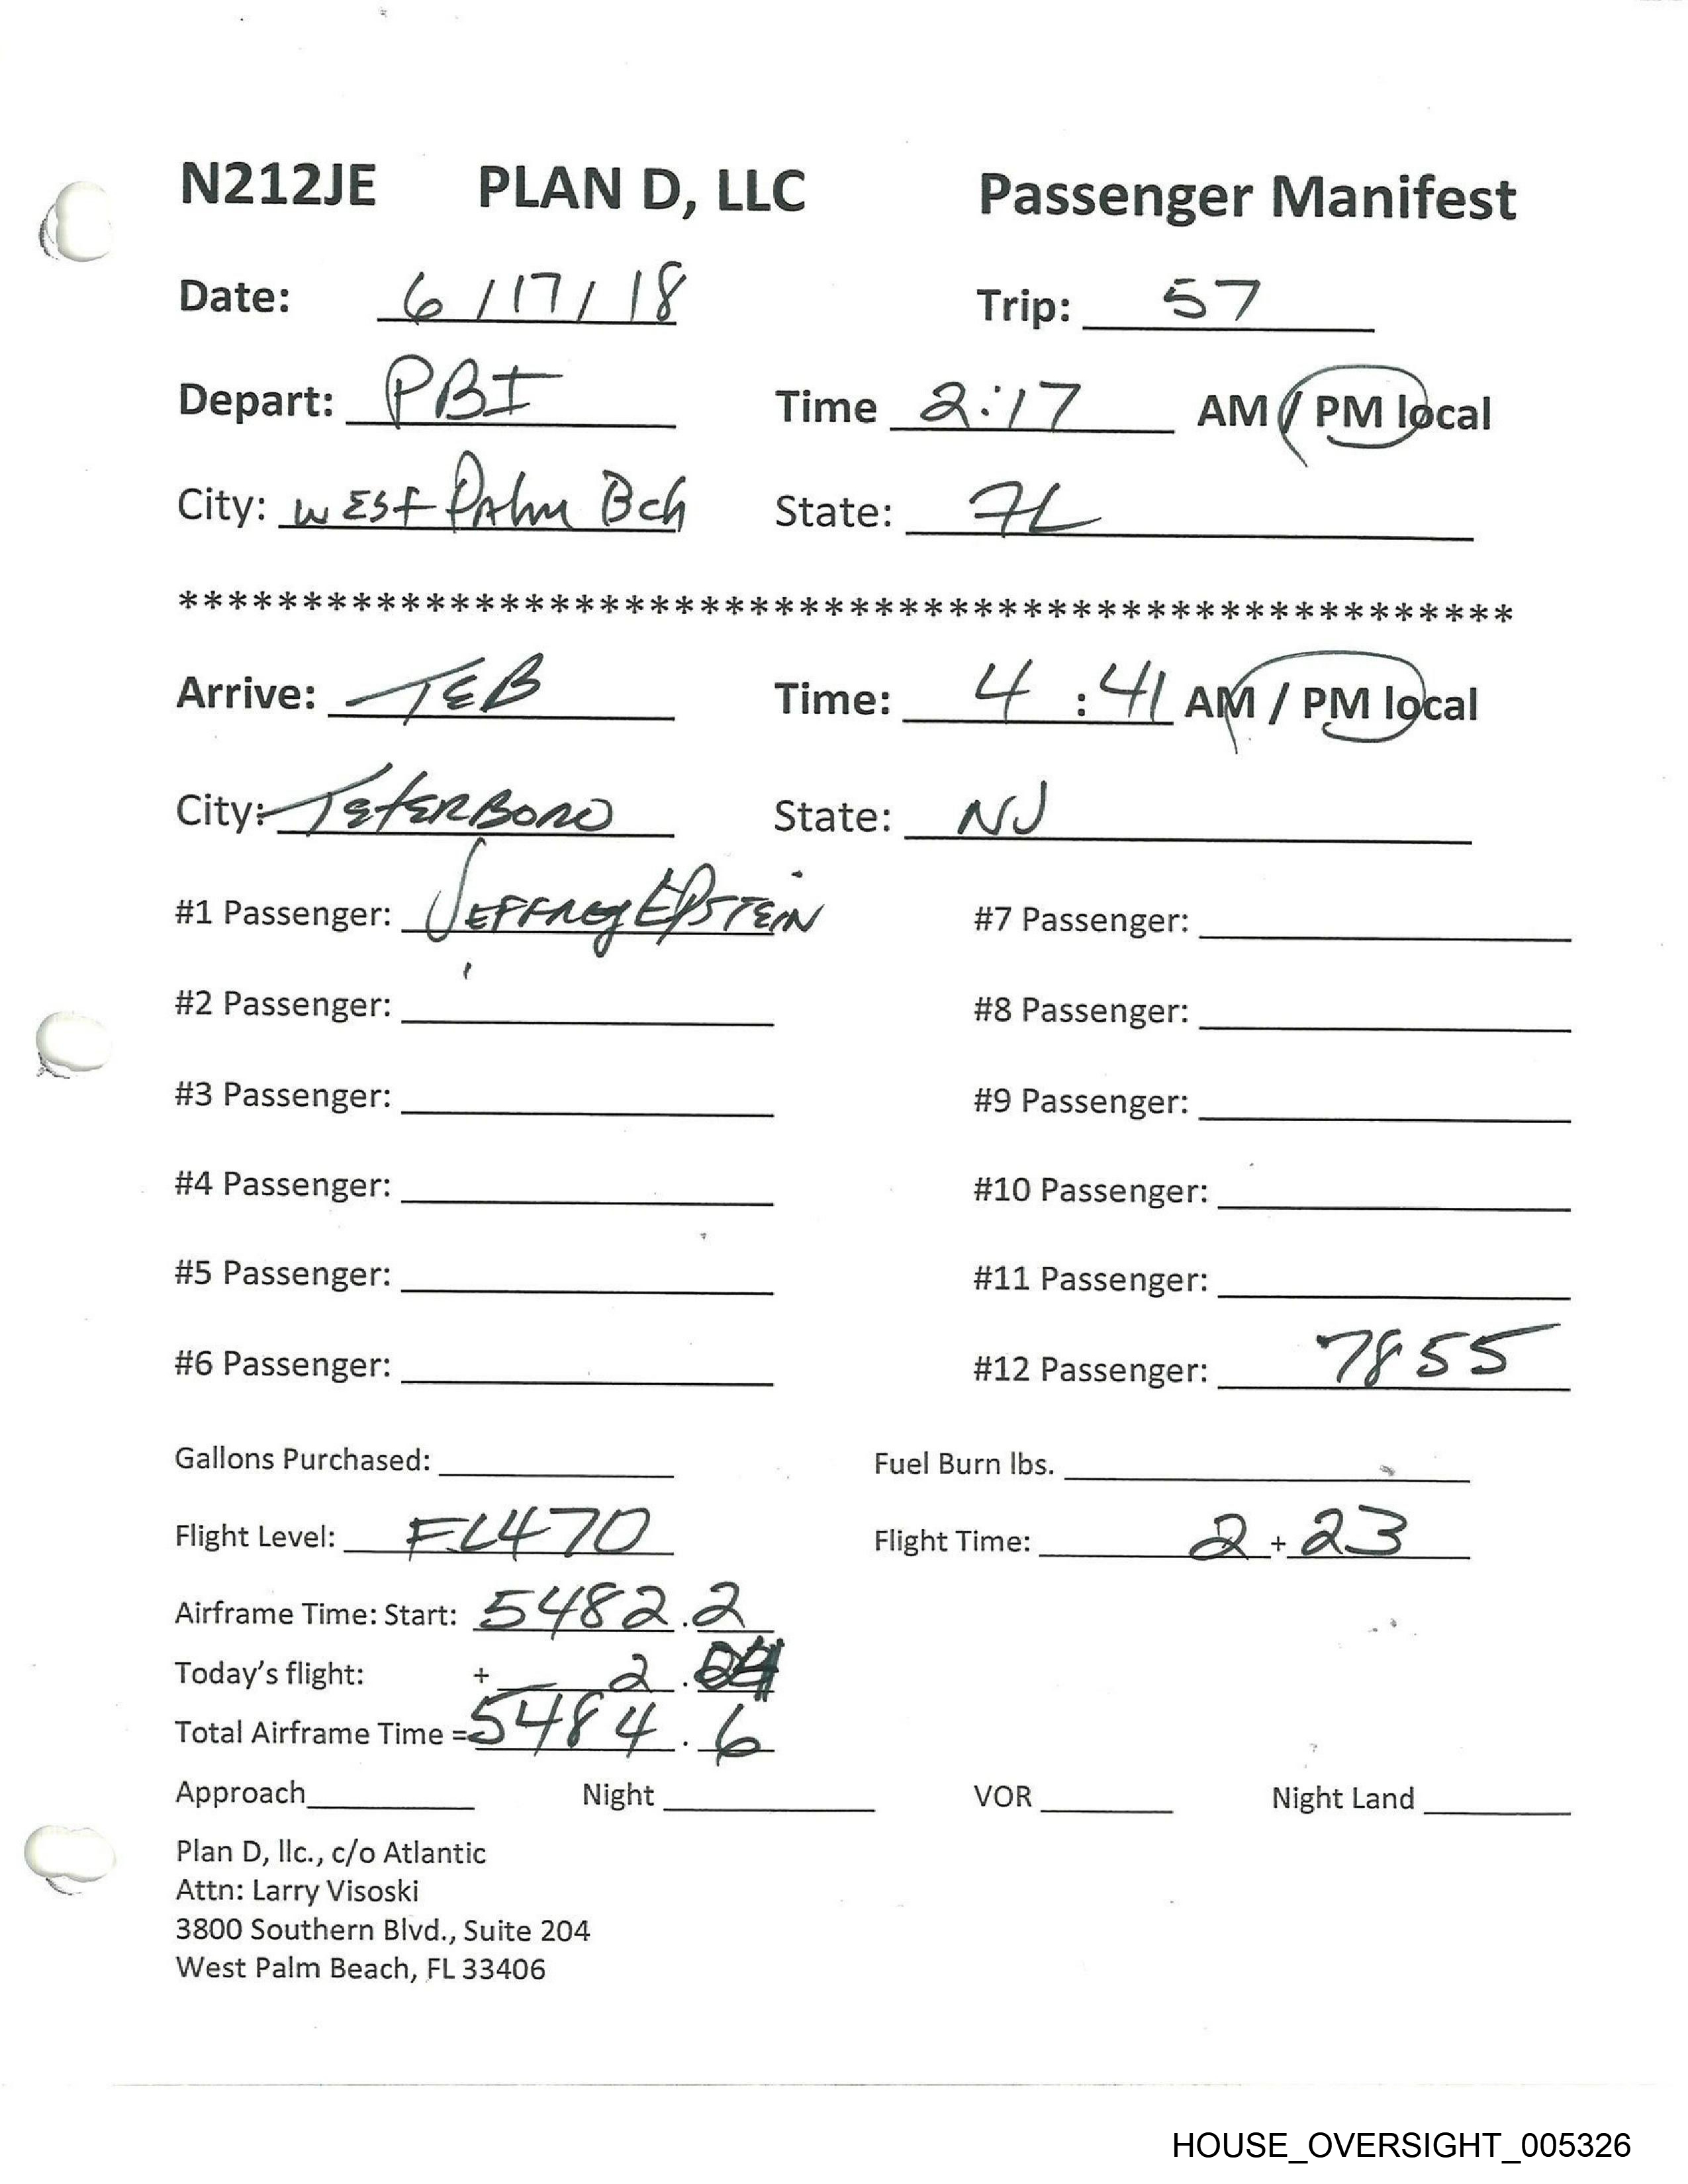 N212JE PLAN D, LLC Passenger Manifest
Date: 6/17/18 Trip: 57
Depart: PBI Time 2:17 AM / PM local
City: WEST Palm Bch State: FL
******************************************************
Arrive: TEB Time: 4 : 41 AM / PM local
City: TETERBORO State: NJ
#1 Passenger: JEFFREY EPSTEIN #7 Passenger:
#2 Passenger: #8 Passenger:
#3 Passenger: #9 Passenger:
#4 Passenger: #10 Passenger:
#5 Passenger: #11 Passenger:
#6 Passenger: #12 Passenger: 7855
Gallons Purchased: Fuel Burn lbs.
Flight Level: FL470 Flight Time: 2 + 23
Airframe Time: Start: 5482.2
Today's flight: + 2 .
Total Airframe Time =5484.6
Approach Night VOR Night Land
Plan D, llc., c/o Atlantic
Attn: Larry Visoski
3800 Southern Blvd., Suite 204
West Palm Beach, FL 33406
HOUSE_OVERSIGHT_005326